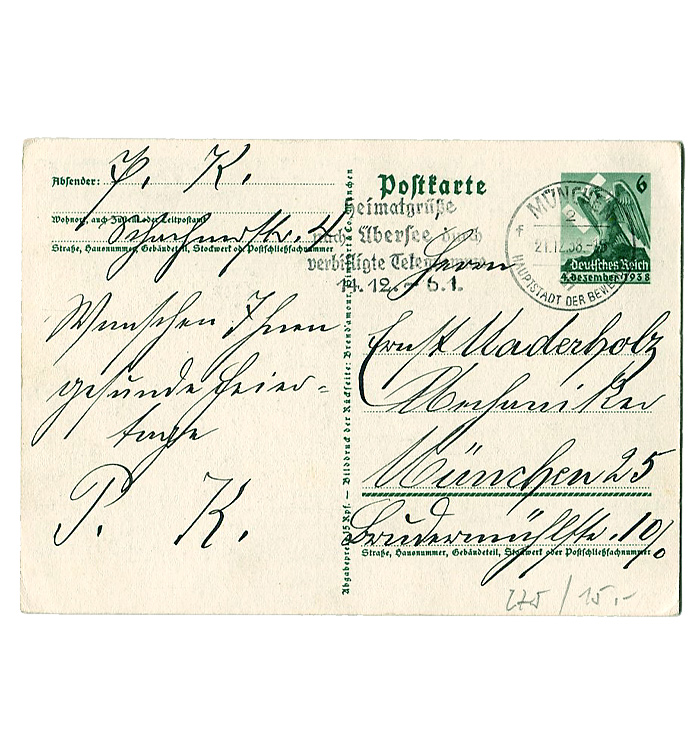 Absender: P. K.
Wohnort, auch Zustell- oder Leitpostamt
Schachnerstr. 4
Straße, Hausnummer, Gebäudeteil, Stockwerk od. Postschließfachnummer
Wünschen Ihnen
gesunde Feier-
tage
P. K.
Abgabepreis 15 Rpf. — Bilddruck der Rückseite: Brend'amour, & Co., München
Postkarte
Heimatgrüße
nach Übersee durch
verbilligte Telegramme
14.12. - 6.1.
MÜNCHEN
2
f
21.12.38.
HAUPTSTADT DER BEWEGUNG
6
Deutsches Reich
4. Dezember 1938
Herrn
Ernst Maderholz
Mechaniker
München 25
Brudermühlstr. 10/0
Straße, Hausnummer, Gebäudeteil, Stockwerk oder Postschließfachnummer
275 / 15.-